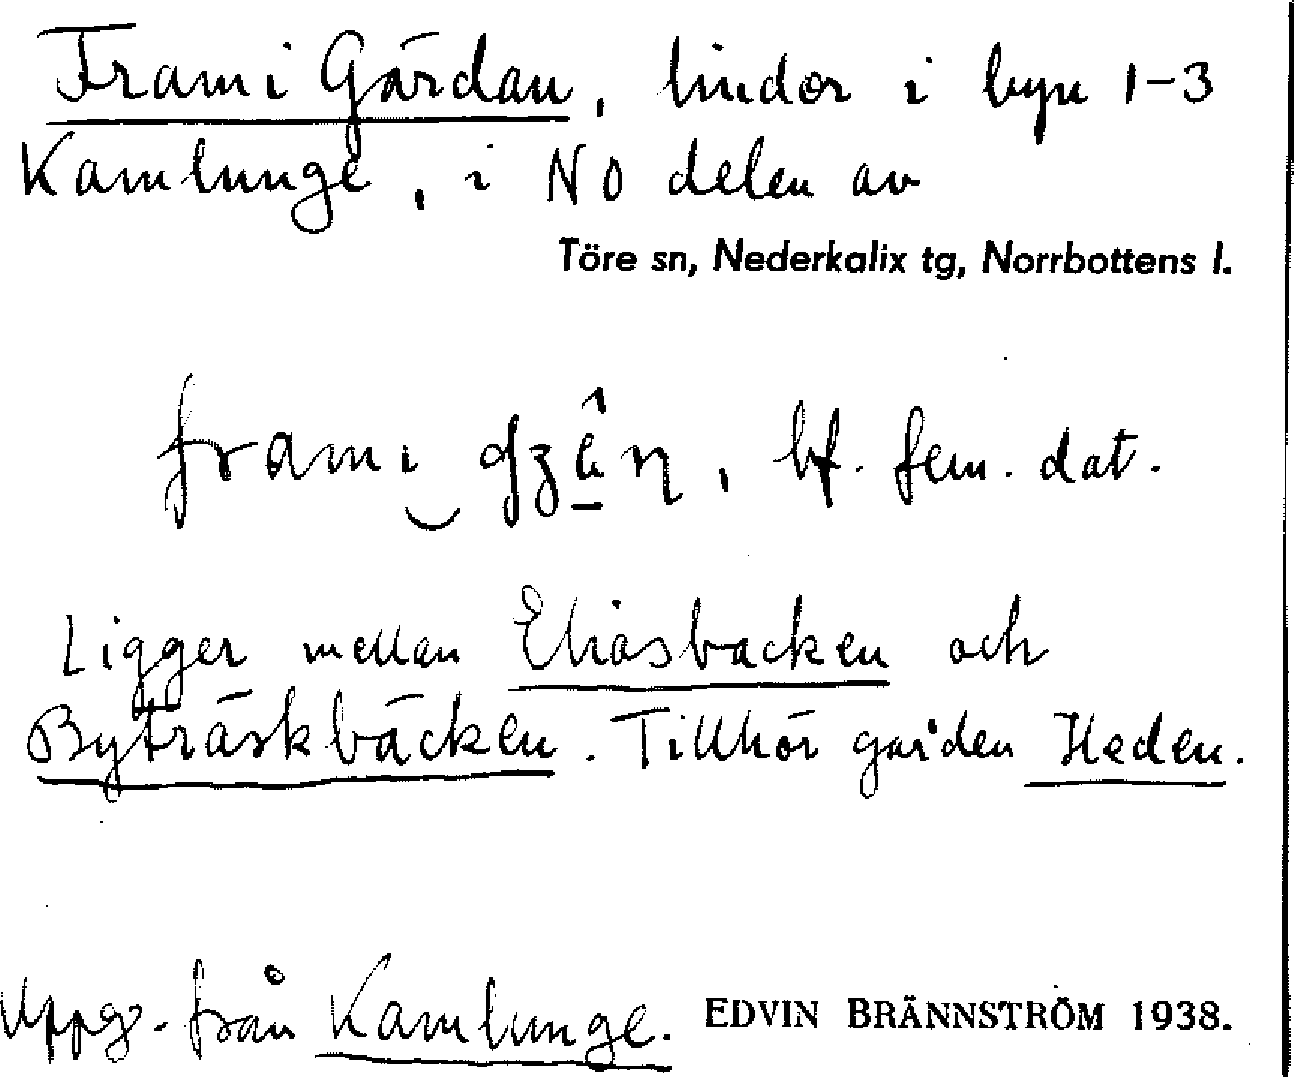 Fram i Gärdan, lindor i byn 1-3
Kamlunge, i NO delen av
Töre sn, Nederkalix tg, Norrbottens l.
fram i , bf. fem. dat.
Ligger mellan Eliasbacken och
Byträskbäcken. Tillhör gården Heden.
Uppg. från Kamlunge. EDVIN BRÄNNSTRÖM 1938.